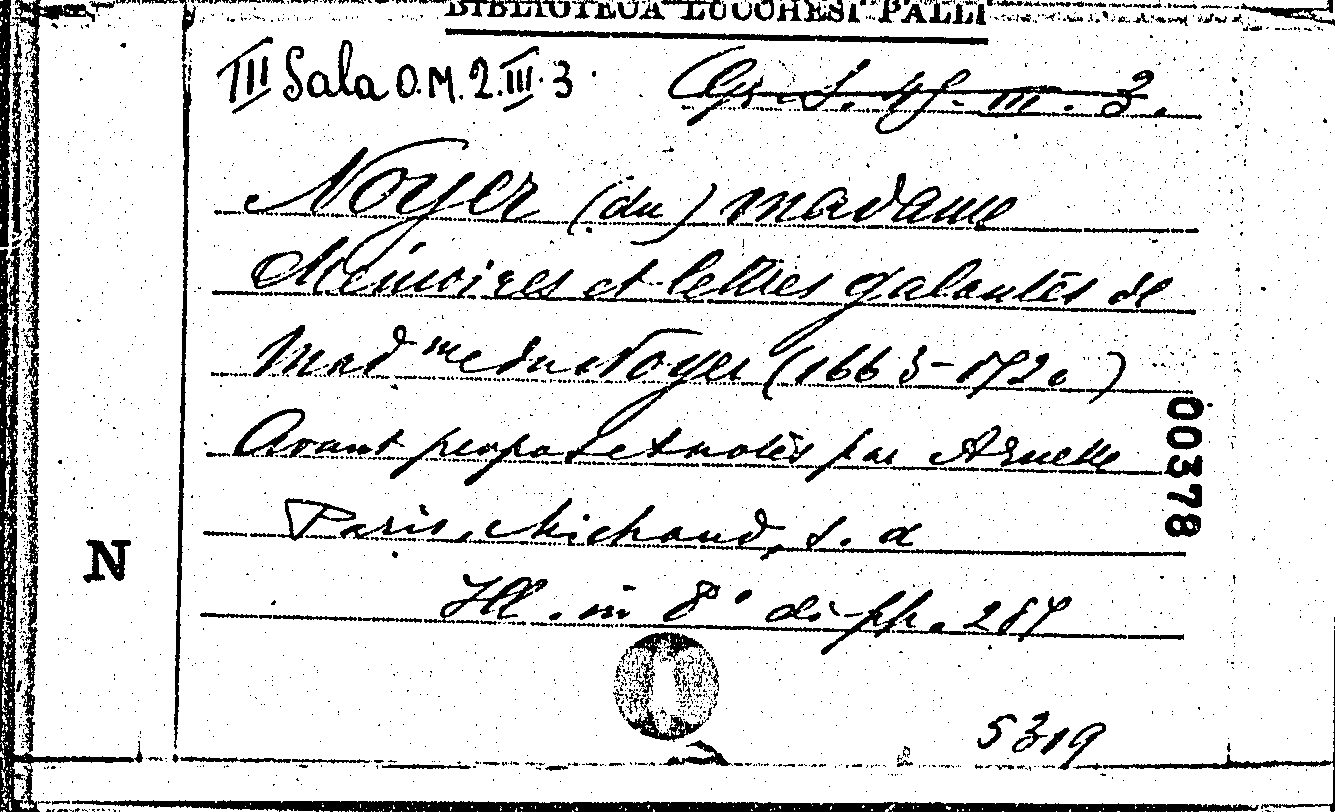 BIBLIOTECA LUCCHESI PALLI
III Sala O.M. 2.III.3
III. 3.
Noyer (du) madame
Mémoires et lettres galantes de
Madme du Noyer (1663-1720)
Avant propos et notes par Arnelle
Paris, Michaud, s. d
Ill. in 8° di pp.
00378
N
5319